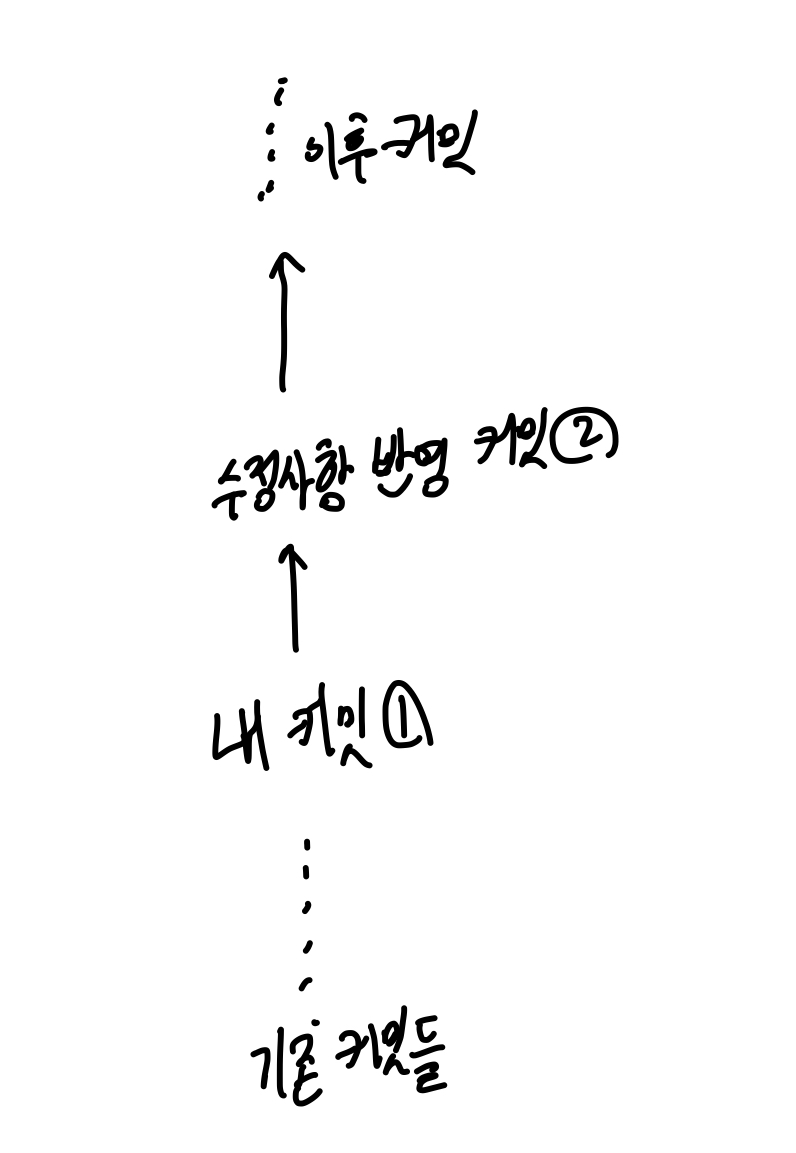 이후 커밋
수정사항 반영 커밋 ②
내 커밋 ①
기존 커밋들